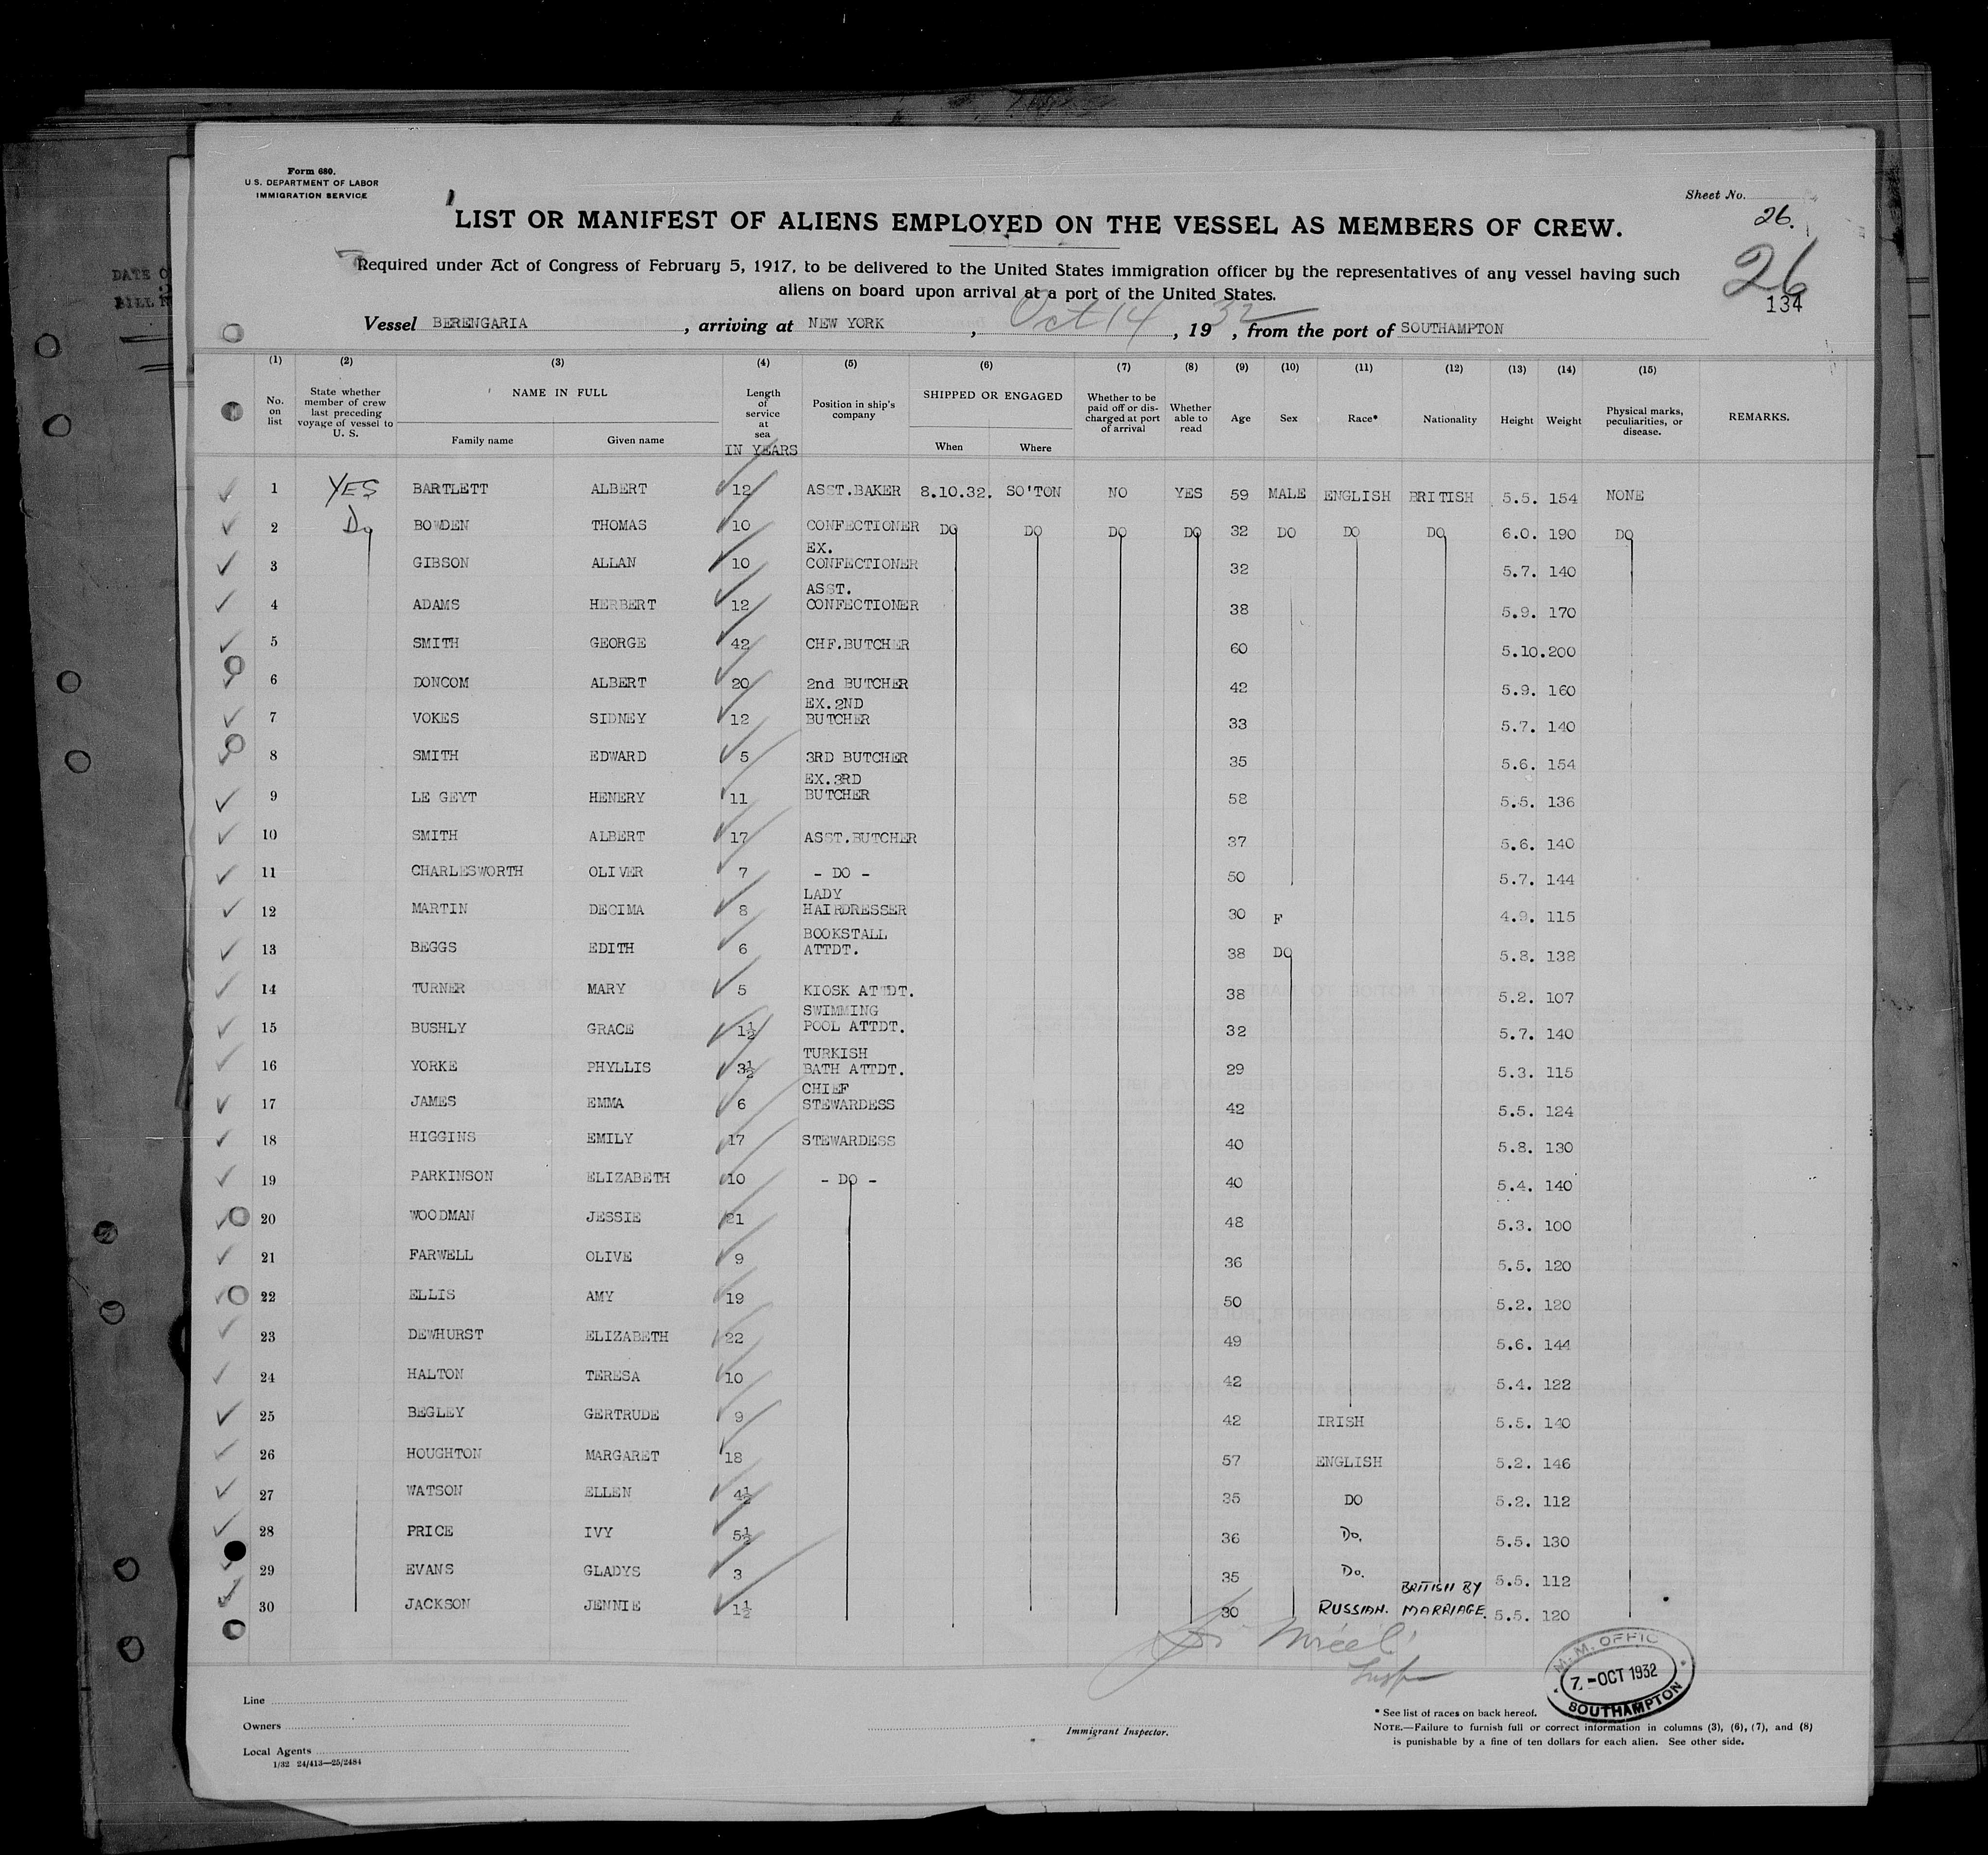 Form 680.
U.S. DEPARTMENT OF LABOR
IMMIGRATION SERVICE
Sheet No.
26.
26
134
LIST OR MANIFEST OF ALIENS EMPLOYED ON THE VESSEL AS MEMBERS OF CREW.
Required under Act of Congress of February 5, 1917, to be delivered to the United States immigration officer by the representatives of any vessel having such
aliens on board upon arrival at a port of the United States.
Vessel BERENGARIA, arriving at NEW YORK, Oct 14, 1932, from the port of SOUTHAMPTON
(1) (2) (3) (4) (5) (6) (7) (8) (9) (10) (11) (12) (13) (14) (15)
No. on list
State whether member of crew last preceding voyage of vessel to U. S.
NAME IN FULL
Family name Given name
Length of service at sea
IN YEARS
Position in ship's company
SHIPPED OR ENGAGED
When Where
Whether to be paid off or discharged at port of arrival
Whether able to read
Age Sex Race* Nationality Height Weight
Physical marks, peculiarities, or disease.
REMARKS.
1 YES BARTLETT ALBERT 12 ASST.BAKER 8.10.32. SO'TON NO YES 59 MALE ENGLISH BRITISH 5.5. 154 NONE
2 Do BOWDEN THOMAS 10 CONFECTIONER DO DO DO DO 32 DO DO DO 6.0. 190 DO
3 GIBSON ALLAN 10 EX. CONFECTIONER 32 5.7. 140
4 ADAMS HERBERT 12 ASST. CONFECTIONER 38 5.9. 170
5 SMITH GEORGE 42 CHF.BUTCHER 60 5.10.200
6 DONCOM ALBERT 20 2nd BUTCHER 42 5.9. 160
7 VOKES SIDNEY 12 EX.2ND BUTCHER 33 5.7. 140
8 SMITH EDWARD 5 3RD BUTCHER 35 5.6. 154
9 LE GEYT HENERY 11 EX.3RD BUTCHER 58 5.5. 136
10 SMITH ALBERT 17 ASST.BUTCHER 37 5.6. 140
11 CHARLESWORTH OLIVER 7 - DO - 50 5.7. 144
12 MARTIN DECIMA 8 LADY HAIRDRESSER 30 F 4.9. 115
13 BEGGS EDITH 6 BOOKSTALL ATTDT. 38 DO 5.8. 138
14 TURNER MARY 5 KIOSK ATTDT. 38 5.2. 107
15 BUSHLY GRACE 1½ SWIMMING POOL ATTDT. 32 5.7. 140
16 YORKE PHYLLIS 3½ TURKISH BATH ATTDT. 29 5.3. 115
17 JAMES EMMA 6 CHIEF STEWARDESS 42 5.5. 124
18 HIGGINS EMILY 17 STEWARDESS 40 5.8. 130
19 PARKINSON ELIZABETH 10 - DO - 40 5.4. 140
20 WOODMAN JESSIE 21 48 5.3. 100
21 FARWELL OLIVE 9 36 5.5. 120
22 ELLIS AMY 19 50 5.2. 120
23 DEWHURST ELIZABETH 22 49 5.6. 144
24 HALTON TERESA 10 42 5.4. 122
25 BEGLEY GERTRUDE 9 42 IRISH 5.5. 140
26 HOUGHTON MARGARET 18 57 ENGLISH 5.2. 146
27 WATSON ELLEN 4½ 35 DO 5.2. 112
28 PRICE IVY 5½ 36 Do. 5.5. 130
29 EVANS GLADYS 3 35 Do. 5.5. 112
30 JACKSON JENNIE 1½ 30 RUSSIAN. BRITISH BY MARRIAGE. 5.5. 120
M.M. OFFIC
7 -OCT 1932
SOUTHAMPTON
Line
Owners
Local Agents
1/32 24/413—25/2484
Immigrant Inspector.
* See list of races on back hereof.
NOTE.—Failure to furnish full or correct information in columns (3), (6), (7), and (8)
is punishable by a fine of ten dollars for each alien. See other side.